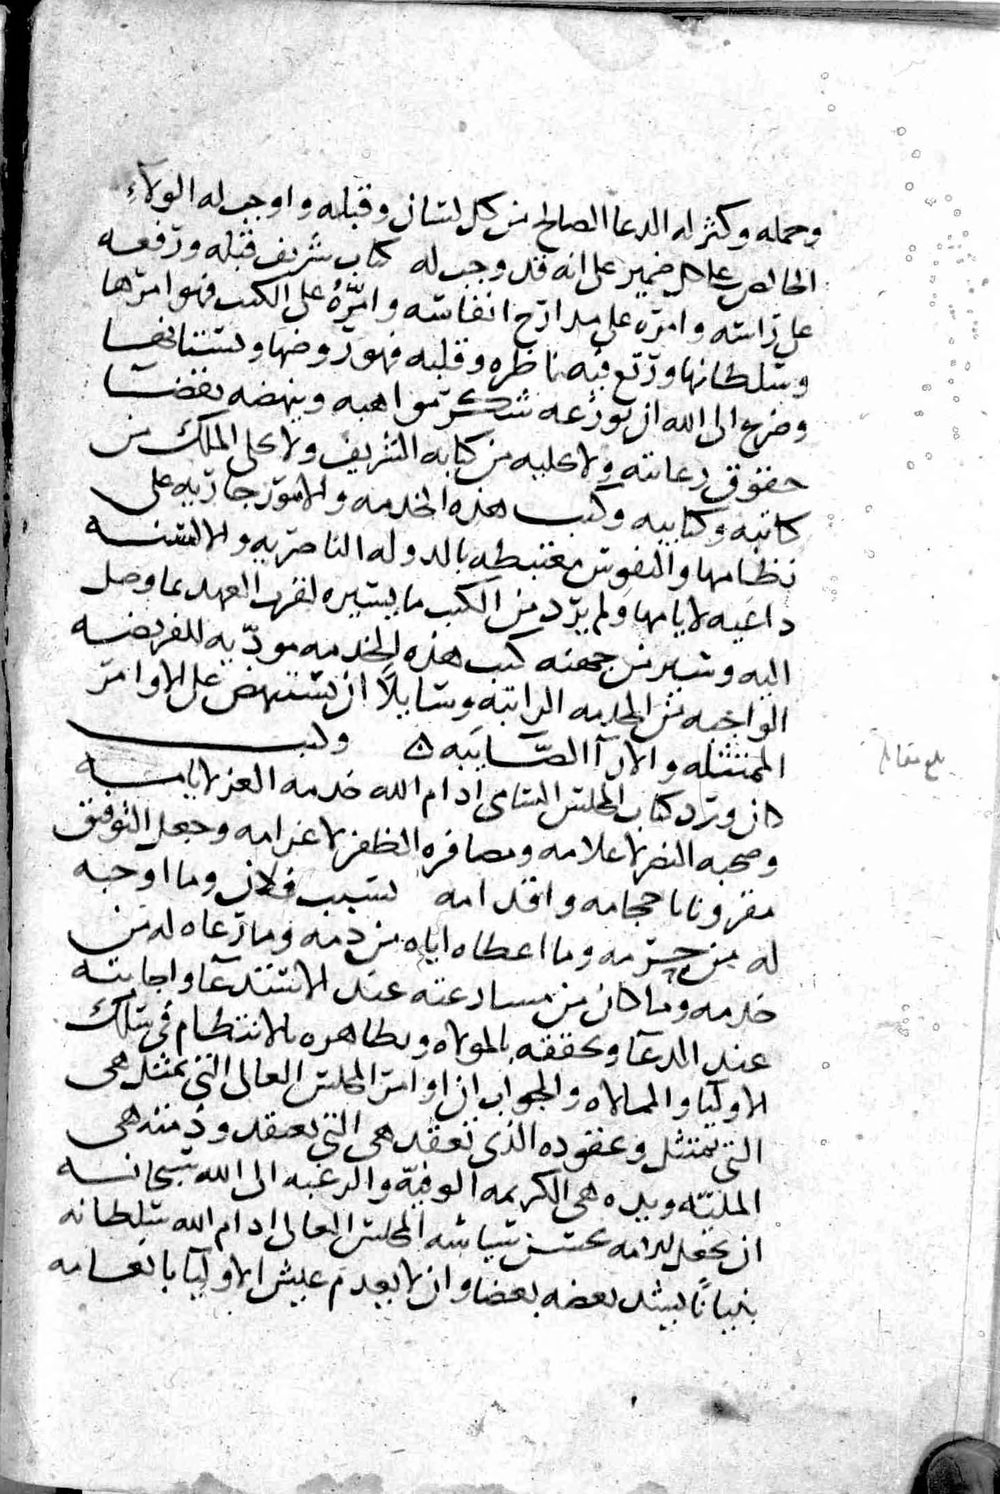 وحمله وكثر له الدعا الصالح من كل لسان وقبله واوجب له الولاء
الخالص على كل ضمير على انه قد وجب له كتاب شريف قبله ورفعه
على راسه وامره على مدارج انفاسه وامّره على الكتب فهو اميرها
وسلطانها ورتع فيه ناظره وقلبه فهو روضها وبستانها
وضرع الى الله ان يوزعه شكر مواهبه وينهضه بقضا
حقوق رعايته ولا يخليه من كتابه الشريف ولا يخلى الملك من
كاتبه وكتابيه وكتب هذه الخدمه والامور جاريه على
نظامها والنفوس مغتبطه بالدوله الناصريه والالسنه
داعيه لايامها ولم يرد من الكتب ما يسيره لقرب العهد بما وصل
اليه وسير من جهته كتب هذه الخدمه موديه للفريضه
الواجبه من الخدمه الراتبه وسايلا ان يستنهض على الاوامر
الممتثله والارآ الصّايبه ه وكتب
كان ورد كتاب المجلس السامى ادام الله خدمه العز لايامه
وصحبه النصر لاعلامه ومصافره الظفر لاعتزامه وجعل التوفيق
مقرونا باحجامه واقدامه بسبب فلان وما اوجبه
له من حرمه وما اعطاه اياه من ذمه وما رعاه له من
خدمه وما كان من مسارعته عند الاستدعا واجابته
عند الدعا وتحققه بالموالاه وتظاهره بالانتظام فى سلك
الاوليا والممالاه والجواب ان اوامر المجلس العالى التى تمتثل هى
التى تمتثل وعقوده الذى تعقد هى التى تعتقد وذمته هى
المليّه ويده هى الكريمه الوفيّه والرغبه الى الله سبحانه
ان يجعل لدامه بحسن سياسه المجلس العالى ادام الله سلطانه
بنيانًا يشد بعضه بعضا وان لا يعدم عيش الاوليا بانعامه
بلغ مقابله